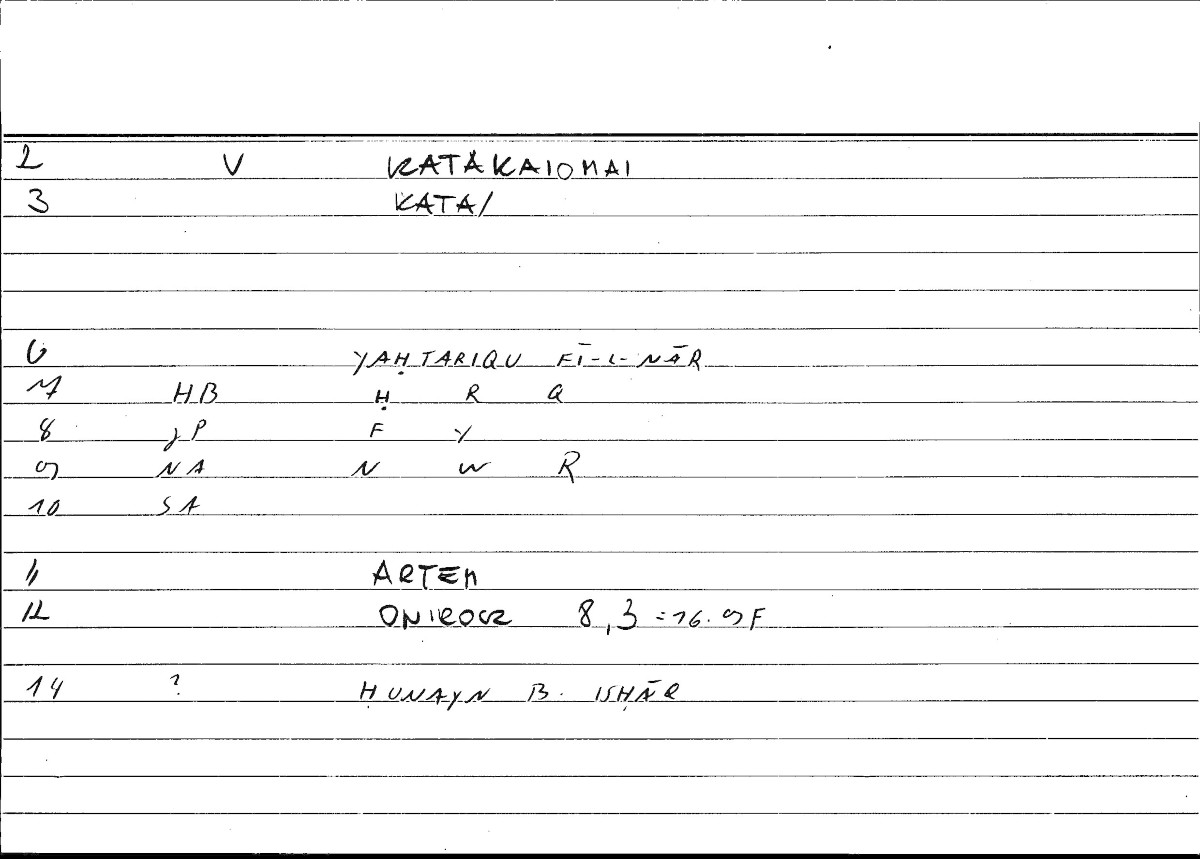 2 V KATAKAIOMAI
3 KATA/
6 YAḤTARIQU FĪ-L-NĀR
7 HB Ḥ R Q
8 JP F Y
9 NA N W R
10 SA
11 ARTEM
12 ONIROCR 8,3 = 16.9F
14 ? ḤUNAYN B. ISḤĀQ